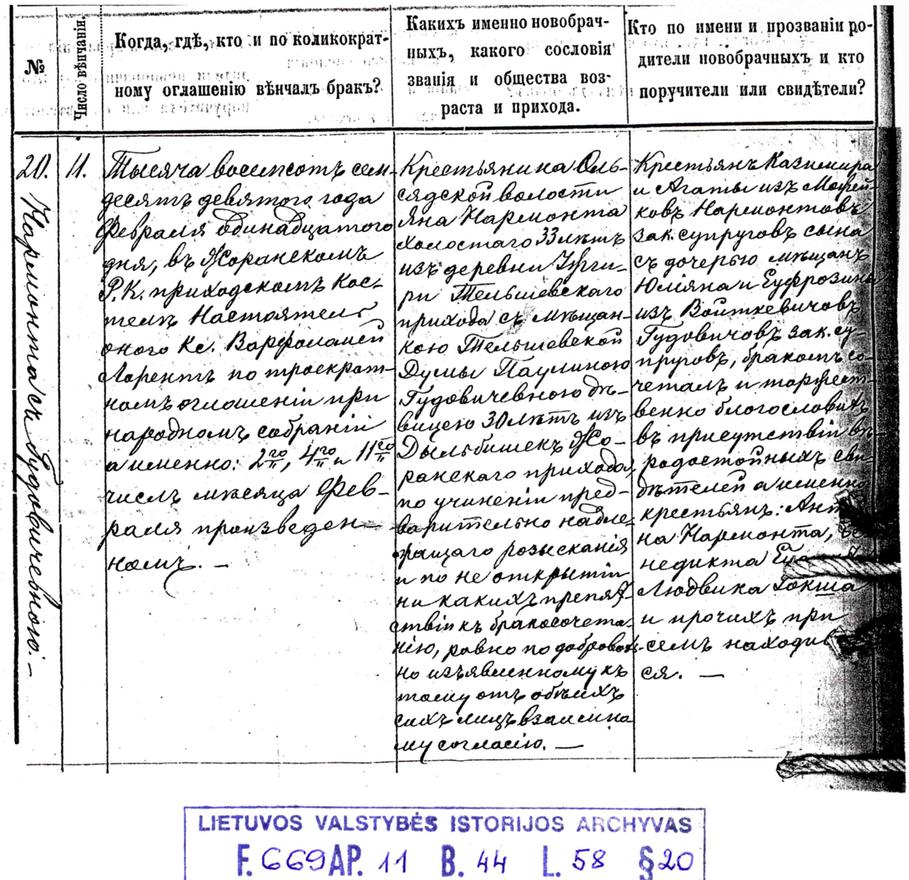 №
Число вѣнчанія.
Когда, гдѣ, кто и по коликократ-
ному оглашенію вѣнчалъ бракъ?
Какихъ именно новобрач-
ныхъ, какого сословія
званія и общества воз-
раста и прихода.
Кто по имени и прозванію ро-
дители новобрачныхъ и кто
поручители или свидѣтели?
20.
Нармонта съ Гудовичевною. —
11.
Тысяча восемьсотъ сем-
десятъ девятого года
Февраля одинадцатого
дня, въ Жоранскомъ
Р. К. приходскомъ Кос-
телѣ Настоятель
оного Кс. Варфоломей
по троекрат-
номъ оглашеніи при
народномъ собраніи
а именно: 2го, 4го и 11го
числъ мѣсяца Фев-
раля произведен-
номъ. —
Крестьянина Оль-
сядской волости
Яна Нармонта
холостаго 33 лѣтъ
изъ деревни
Тельшевскаго
прихода съ мѣщан-
кою Тельшевской
Думы Паулиною
Гудовичевною дѣ-
вицею 30 лѣтъ изъ
Дыльбишекъ Жо-
ранскаго прихода,
по учиненіи пред-
варительно надле-
жащаго розысканія
и по не открытіи
ни какихъ препят-
ствій къ бракосочета-
нію, равно по доброволь-
но изъявленному къ
тому отъ обѣихъ
сихъ лицъ взаимно-
му согласію. —
Крестьянъ Казимира
и Агаты изъ
ковъ Нармонтовъ
зак. супруговъ сына
съ дочерью мѣщанъ
Юліяна и Еуфрозины
изъ Войткевичовъ
Гудовичовъ зак. су-
пруговъ, бракомъ со-
четалъ и торжест-
венно благословилъ
въ присутствіи
родостойныхъ сви-
дѣтелей а именно
крестьянъ:
на Нармонта,
недикта
Людвика Рокша
и прочихъ при
семъ находив
ся. —
LIETUVOS VALSTYBĖS ISTORIJOS ARCHYVAS
F. 669 AP. 11 B. 44 L. 58 § 20